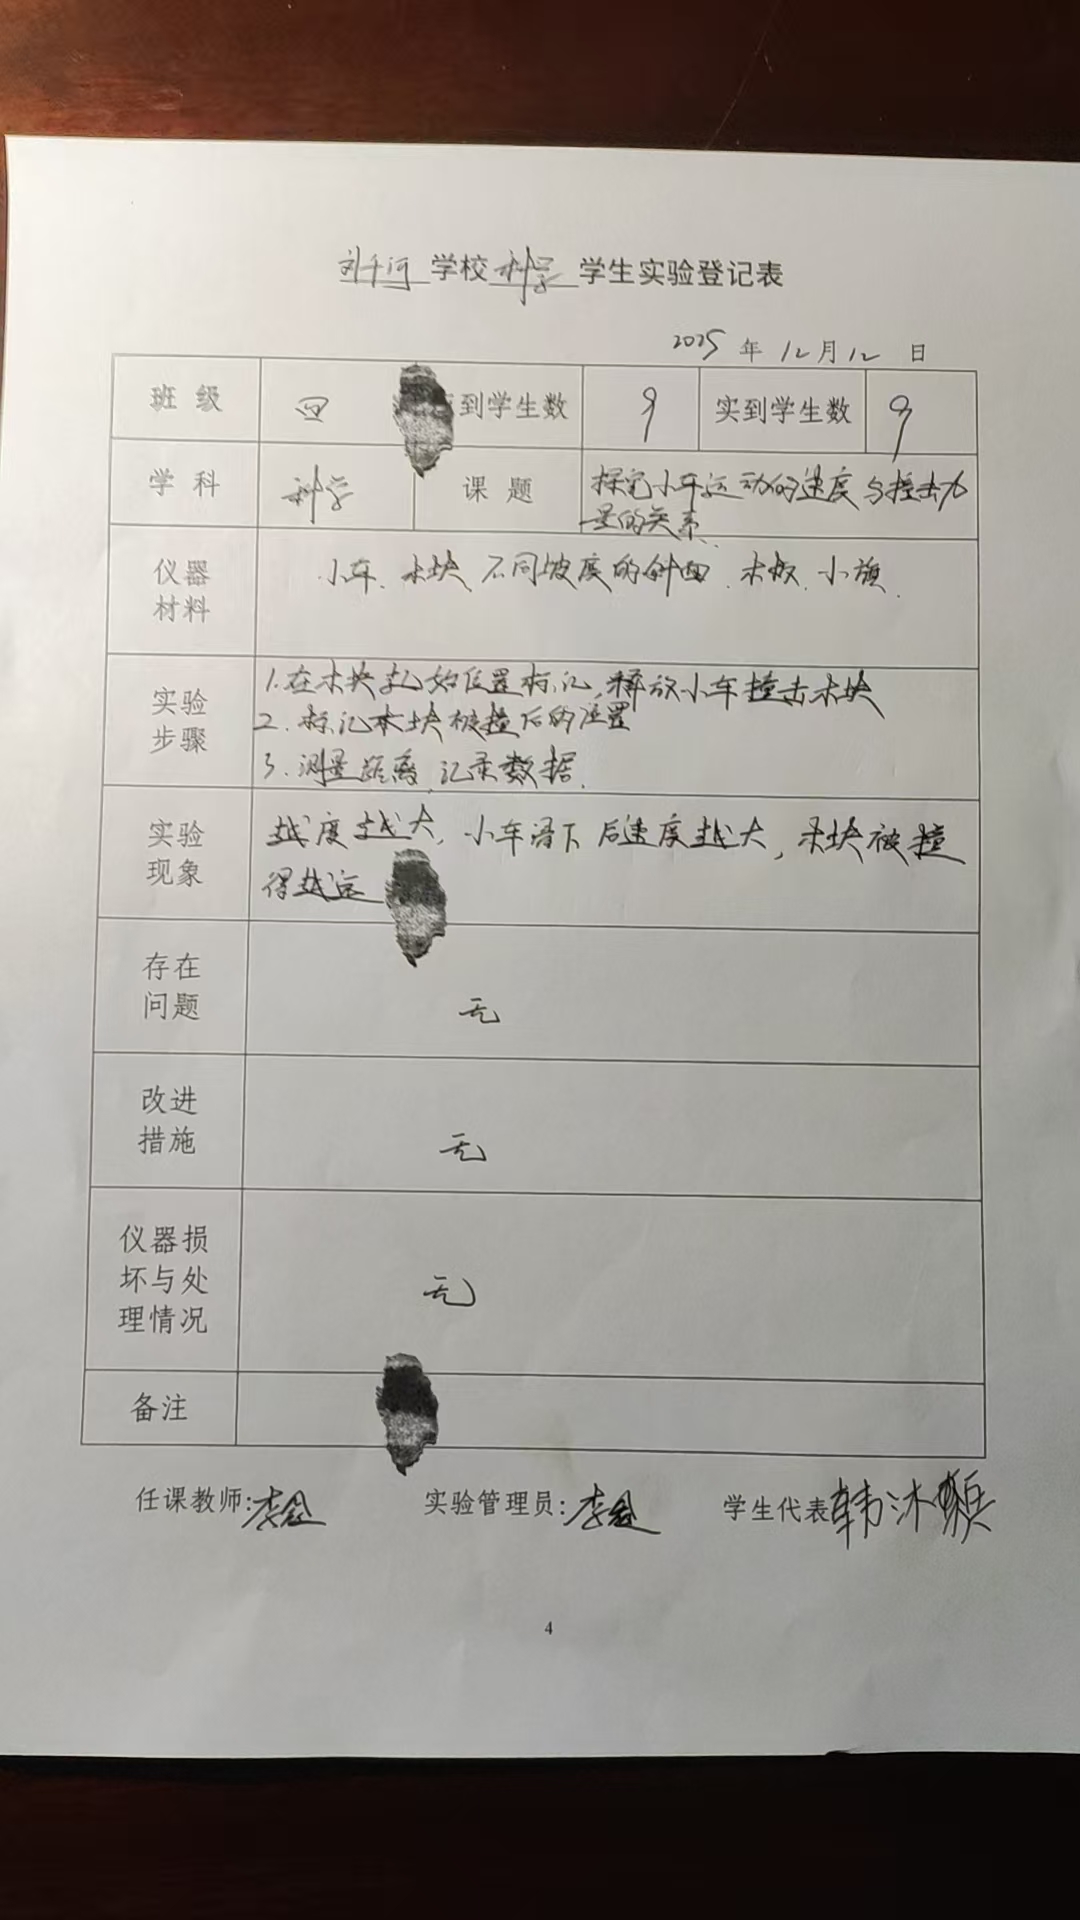 刘千河 学校 科学 学生实验登记表
2025 年 12 月 12 日
班 级 四 到学生数 9 实到学生数 9
学 科 科学 课 题 探究小车运动的速度与撞击力
量的关系
仪器
材料
小车、木块、不同坡度的斜面、木板、小旗
实验
步骤
1.在木块起始位置标记,释放小车撞击木块
2.标记木块被撞后的位置
3.测量距离,记录数据.
实验
现象
越度越大,小车滑下后速度越大,木块被撞
得越远
存在
问题
无
改进
措施
无
仪器损
坏与处
理情况
无
备注
任课教师: 李 实验管理员: 李 学生代表 韩沐
4